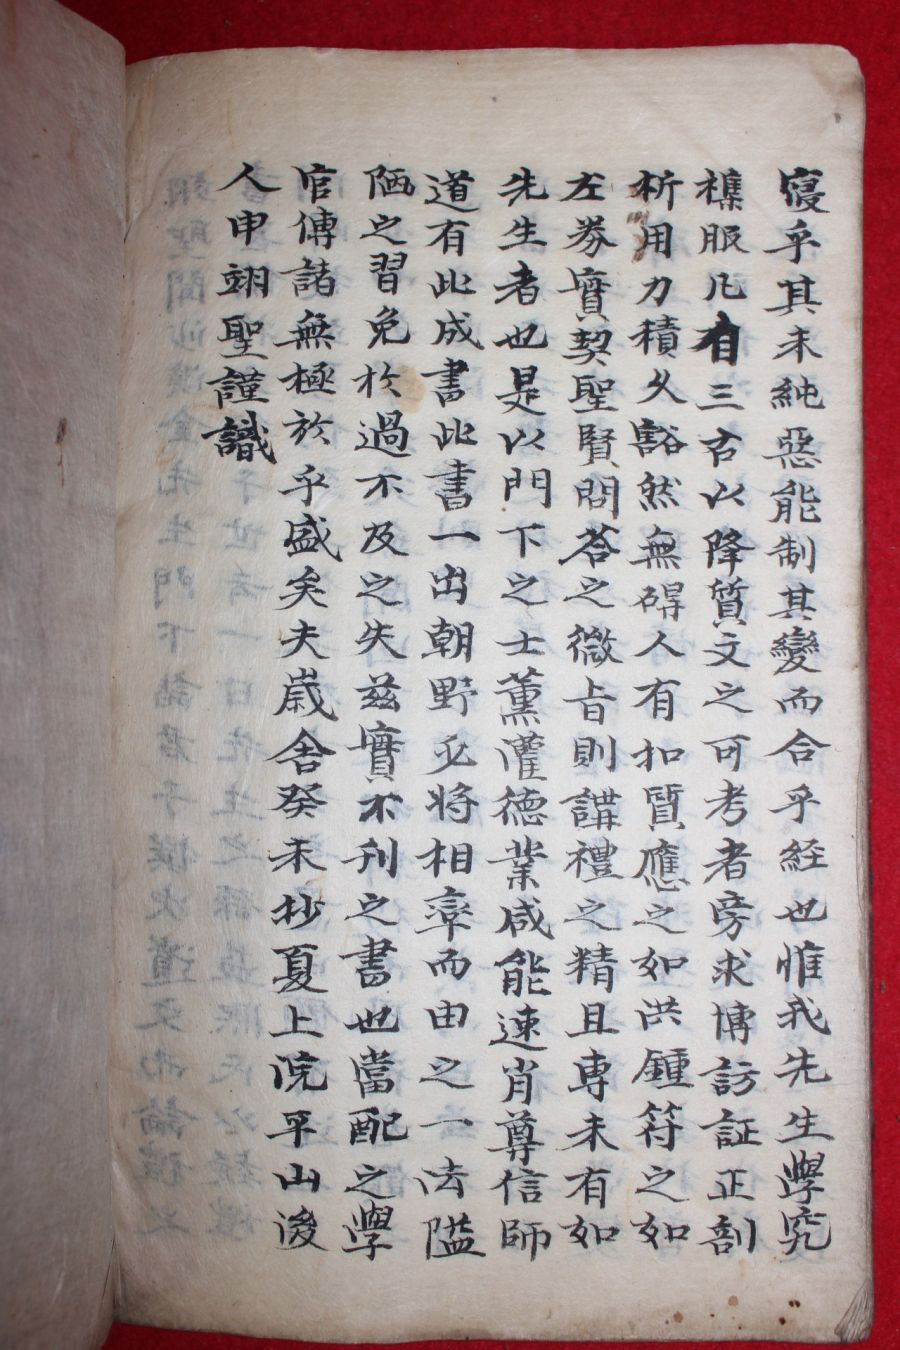 寢乎其未純惡能制其變而合乎經也惟我先生學究
機服凡有三右以降質文之可考者旁求博訪証正剖
析用力積久豁然無碍人有扣質應之如洪鍾符之如
左券實契聖賢問答之微旨則講禮之精且專未有如
先生者也是以門下之士薰灌德業咸能速肖尊信師
道有此成書此書一出朝野必將相率而由之一去隘
陋之習免於過不及之失兹實不刊之書也當配之學
官傳諸無極於乎盛矣夫歲舍癸未抄夏上浣平山後
人申翊聖謹識